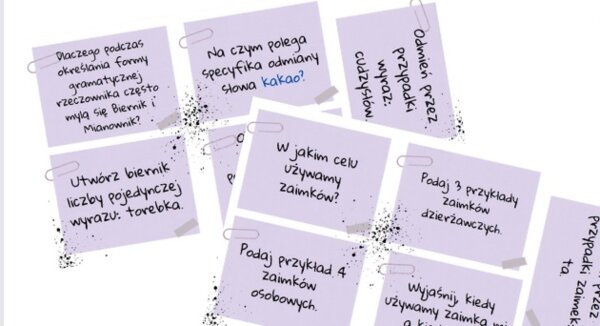 Dlaczego podczas
określania formy
gramatycznej
rzeczownika często
mylą się Biernik i
Mianownik?
Na czym polega
specyfika odmiany
słowa kakao?
Odmień przez
przypadki
wyraz:
cudzysłów
Utwórz biernik
liczby pojedynczej
wyrazu: torebka.
W jakim celu
używamy
zaimków?
Podaj 3 przykłady
zaimków
dzierżawczych.
Podaj przykład 4
zaimków
osobowych.
Wyjaśnij, kiedy
używamy zaimka
przypadki zaimek
ta.